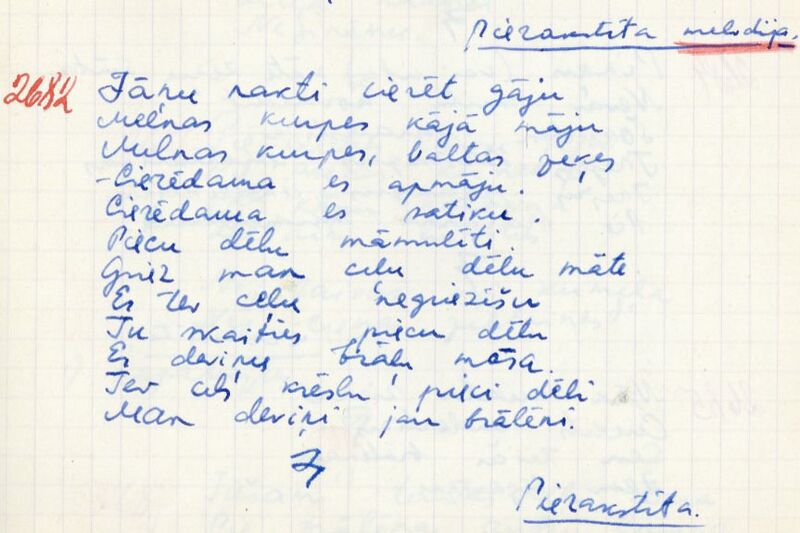 Pierakstīta melodija.
2682 Jāņu nakti cierēt gāju
Melnas kurpes kājā māju
Melnas kurpes, baltas zeķes
-Cierēdama es apmāju.
Cierēdama es satiku.
Piecu dēlu māmulīti.
Griez man ceļu dēlu māte
Es tev ceļu negriezīšu
Tu skaities piecu dēlu
Es deviņu brāļu māsa.
Tev cels krēslu pieci dēli
Man deviņi jau brālēņi.
Pierakstīta.